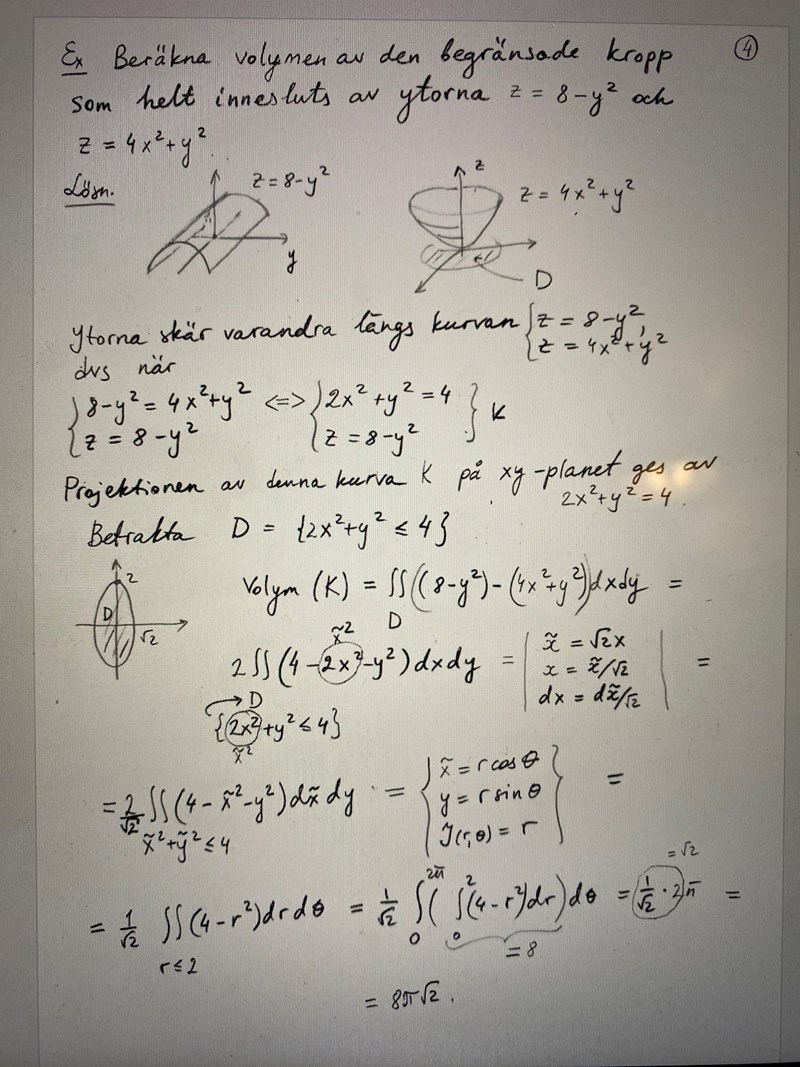 ④
Ex Beräkna volymen av den begränsade kropp
som helt innesluts av ytorna z = 8-y² och
z = 4x²+y².
Lösn.
z = 8-y²
y
z
z = 4x²+y²
D
Ytorna skär varandra längs kurvan { z = 8-y²,
{ z = 4x²+y²
dvs när
{ 8-y² = 4x²+y² <=> { 2x²+y² = 4 } K
{ z = 8-y² { z = 8-y²
Projektionen av denna kurva K på xy-planet ges av
2x²+y² = 4.
Betrakta D = {2x²+y² ≤ 4}
2
D
√2
Volym (K) = ∬((8-y²)-(4x²+y²))dxdy =
D
x̃²
2∬(4-2x²-y²)dxdy = | x̃ = √2x | =
x = x̃/√2
dx = dx̃/√2
D
{2x²+y² ≤ 4}
x̃²
= 2/√2 ∬(4-x̃²-y²)dx̃dy = { x̃ = r cos θ } =
y = r sin θ
J(r,θ) = r
x̃²+ỹ² ≤ 4
= √2
= 1/√2 ∬(4-r²)dr dθ = 1/√2 ∫₀^2π ( ∫₀^2 (4-r²)dr)dθ = 1/√2 · 2π =
r ≤ 2
= 8
= 8π√2.